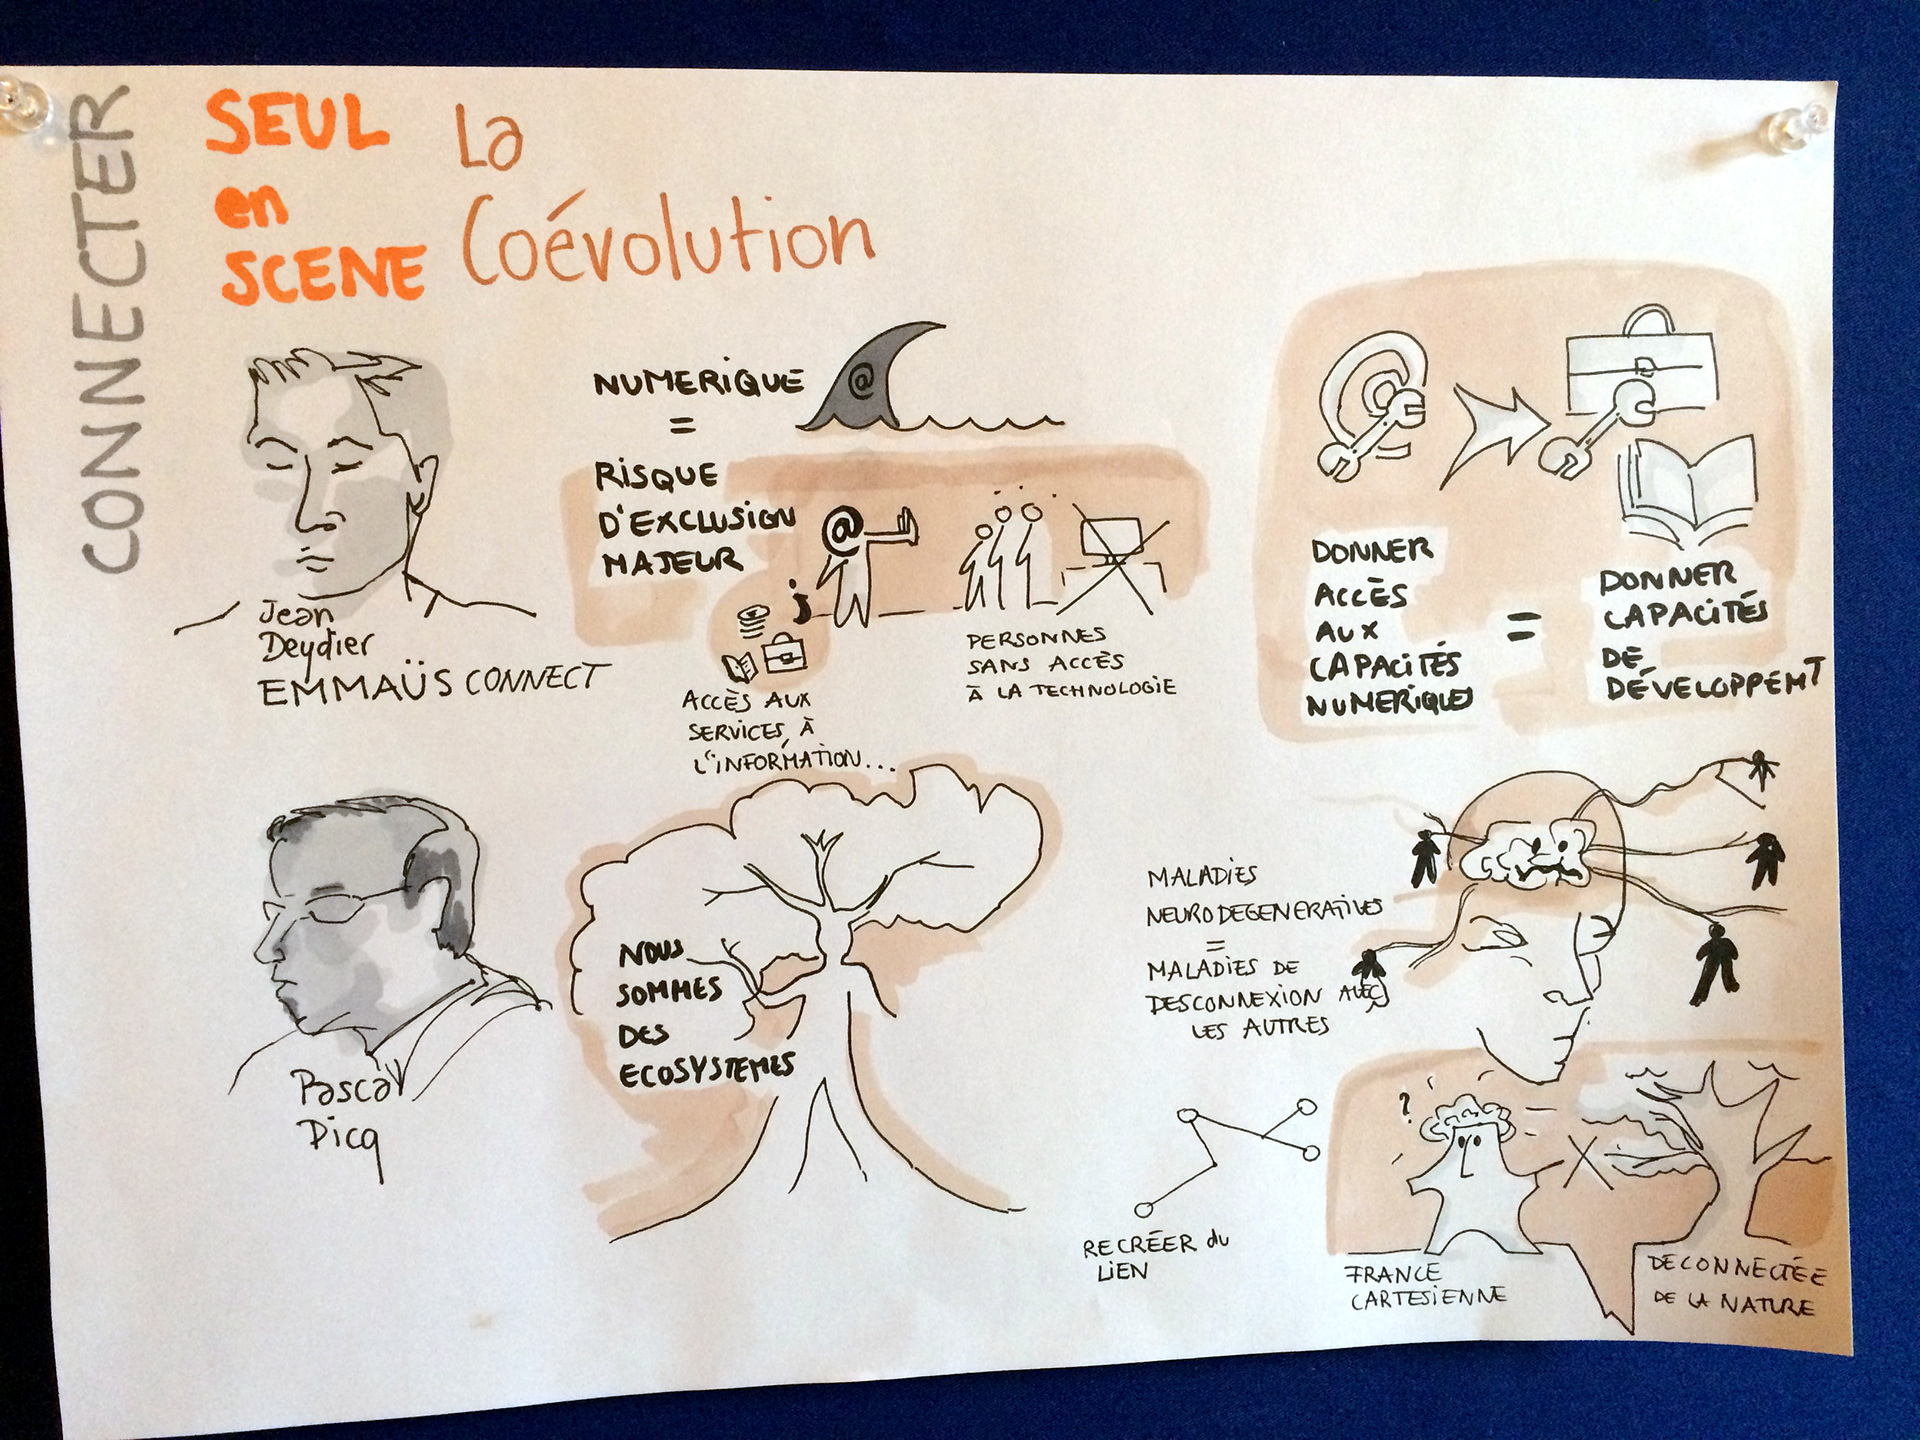 CONNECTER
SEUL
en
SCENE
La
Coévolution
Jean
Deydier
EMMAÜS CONNECT
NUMERIQUE
=
@
RISQUE
D'EXCLUSION
MAJEUR
@
ACCÈS AUX
SERVICES, À
L'INFORMATION...
PERSONNES
SANS ACCÈS
À LA TECHNOLOGIE
DONNER
ACCÈS
AUX
CAPACITÉS
NUMERIQUES
=
DONNER
CAPACITÉS
DE
DÉVELOPPEMT
Pascal
Picq
NOUS
SOMMES
DES
ECOSYSTEMES
MALADIES
NEURODEGENERATIVES
=
MALADIES DE
DESCONNEXION AVEC
LES AUTRES
RECRÉER du
LIEN
?
FRANCE
CARTESIENNE
DECONNECTÉE
DE LA NATURE